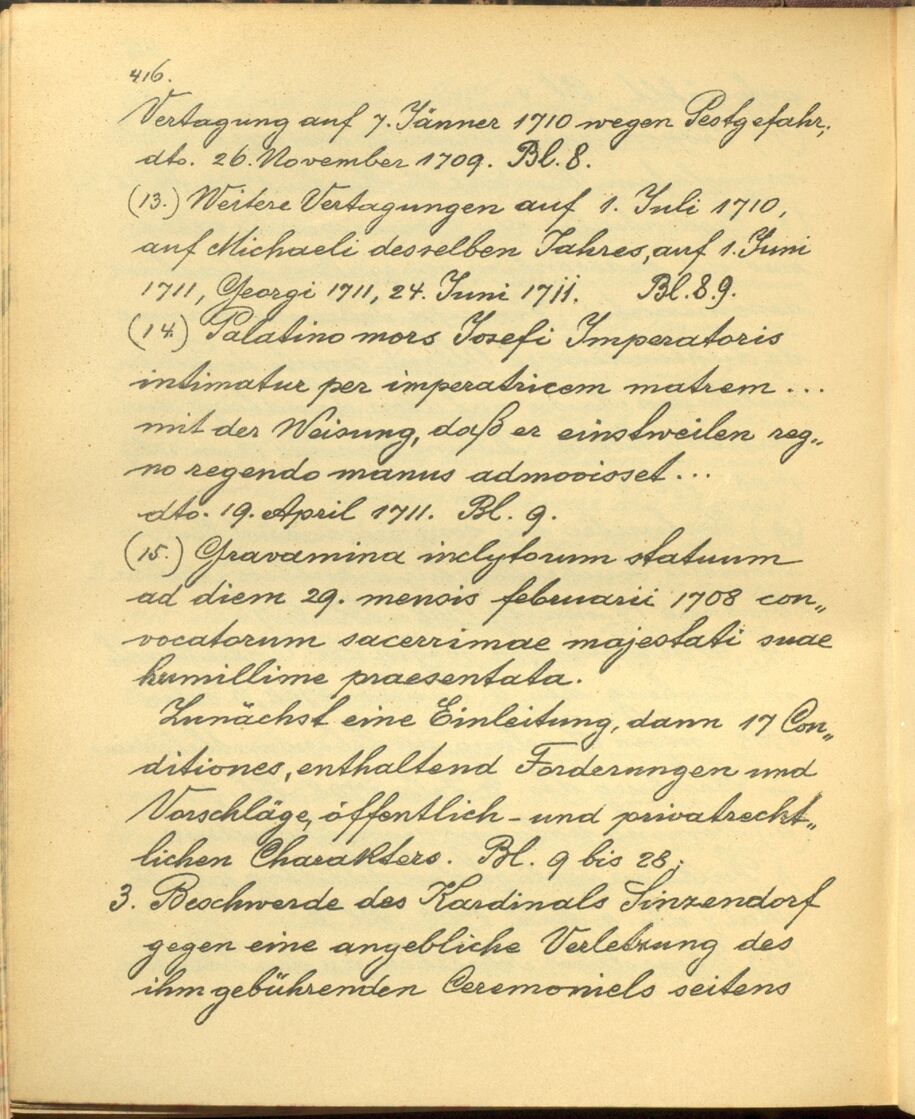 416.
Vertagung auf 7. Jänner 1710 wegen Pestgefahr,
dto. 26. November 1709. Bl. 8.
(13.) Weitere Vertagungen auf 1. Juli 1710,
auf Michaeli desselben Jahres, auf 1. Juni
1711, Georgi 1711, 24. Juni 1711. Bl. 8.9.
(14.) Palatino mors Josefi Imperatoris
intimatur per imperatricem matrem ...
mit der Weisung, daß er einstweilen reg„
no regendo manus admovisset ...
dto. 19. April 1711. Bl. 9.
(15.) Gravamina inclytorum statuum
ad diem 29. mensis februarii 1708 con„
vocatorum sacerrimae majestati suae
humillime praesentata.
Zunächst eine Einleitung, dann 17 Con„
ditiones, enthaltend Forderungen und
Vorschläge, öffentlich- und privatrecht„
lichen Charakters. Bl. 9 bis 28;
3. Beschwerde des Kardinals Sinzendorf
gegen eine angebliche Verletzung des
ihm gebührenden Ceremoniels seitens